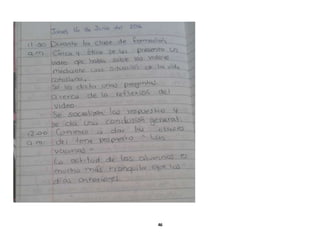 Jueves 16 de Junio del 2016
11:00 Durante la clase de formación
a.m. Cívica y Ética se les presento un
video que habla sobre los valores
mediante una situación de la vida
cotidiana.
Se la dicta unas preguntas
acerca de la reflexión del
video.
Se socializan las respuestas y
se crea una conclusión general.
12:00 Comienzo a dar las clases
a.m. del tema pequeño "Las
vacunas"
La actitud de los alumnos es
mucho más tranquila que los
días anteriores.
46